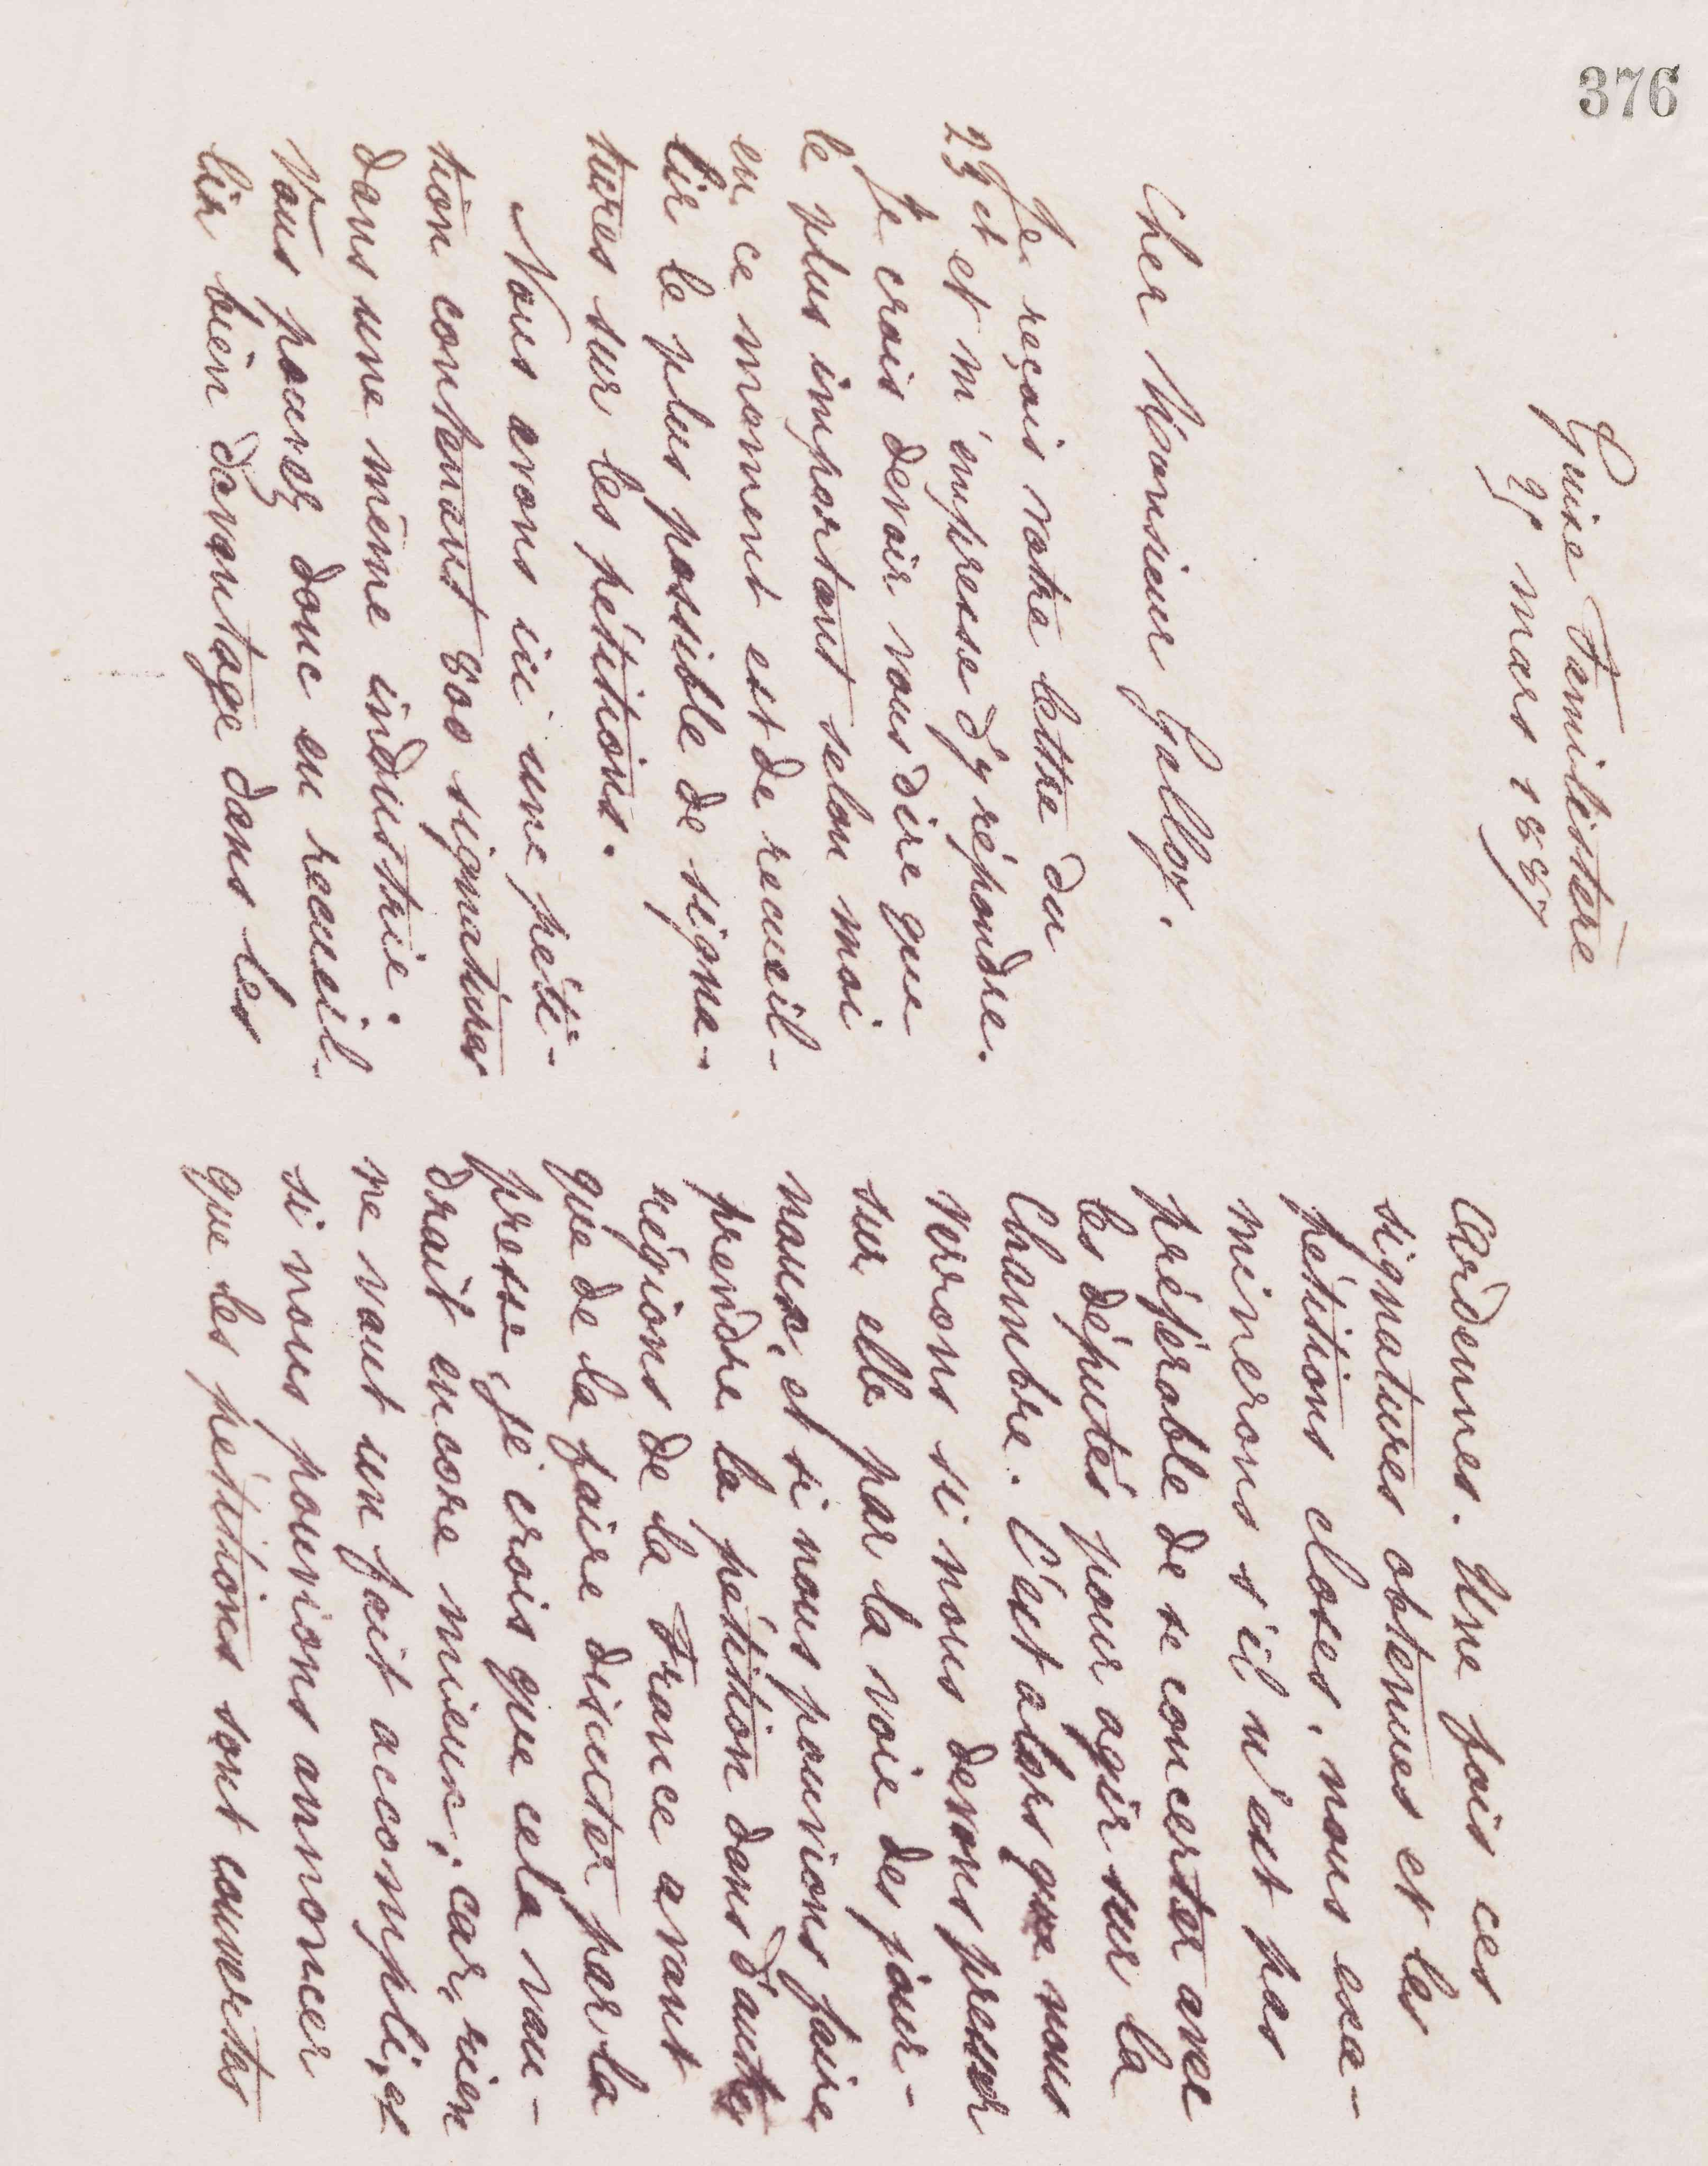 376
Guise Familistère
25 mars 1887
Cher Monsieur Gulloz.
Je reçois votre lettre du
23 ct et m'empresse d'y répondre.
Je crois devoir vous dire que
le plus important selon moi
en ce moment est de recueil-
lir le plus possible de signa-
tures sur les pétitions.
Nous avons ici une péti-
tion contenant 800 signatures
dans une même industrie.
Vous pouvez donc en recueil-
lir bien davantage dans les
Ardennes. Une fois ces
signatures obtenues et les
pétitions closes, nous exa-
minerons s'il n'est pas
préférable de se concerter avec
les députés pour agir sur la
Chambre. C'est alors que nous
verrons si nous devons presser
sur elle par la voie des jour-
naux, et si nous pouvions faire
prendre la pétition dans d'autres
régions de la France avant
que de la faire discuter par la
presse, je crois que cela vau-
drait encore mieux; car, rien
ne vaut un fait accompli, et
si nous pouvions annoncer
que les pétitions sont couvertes